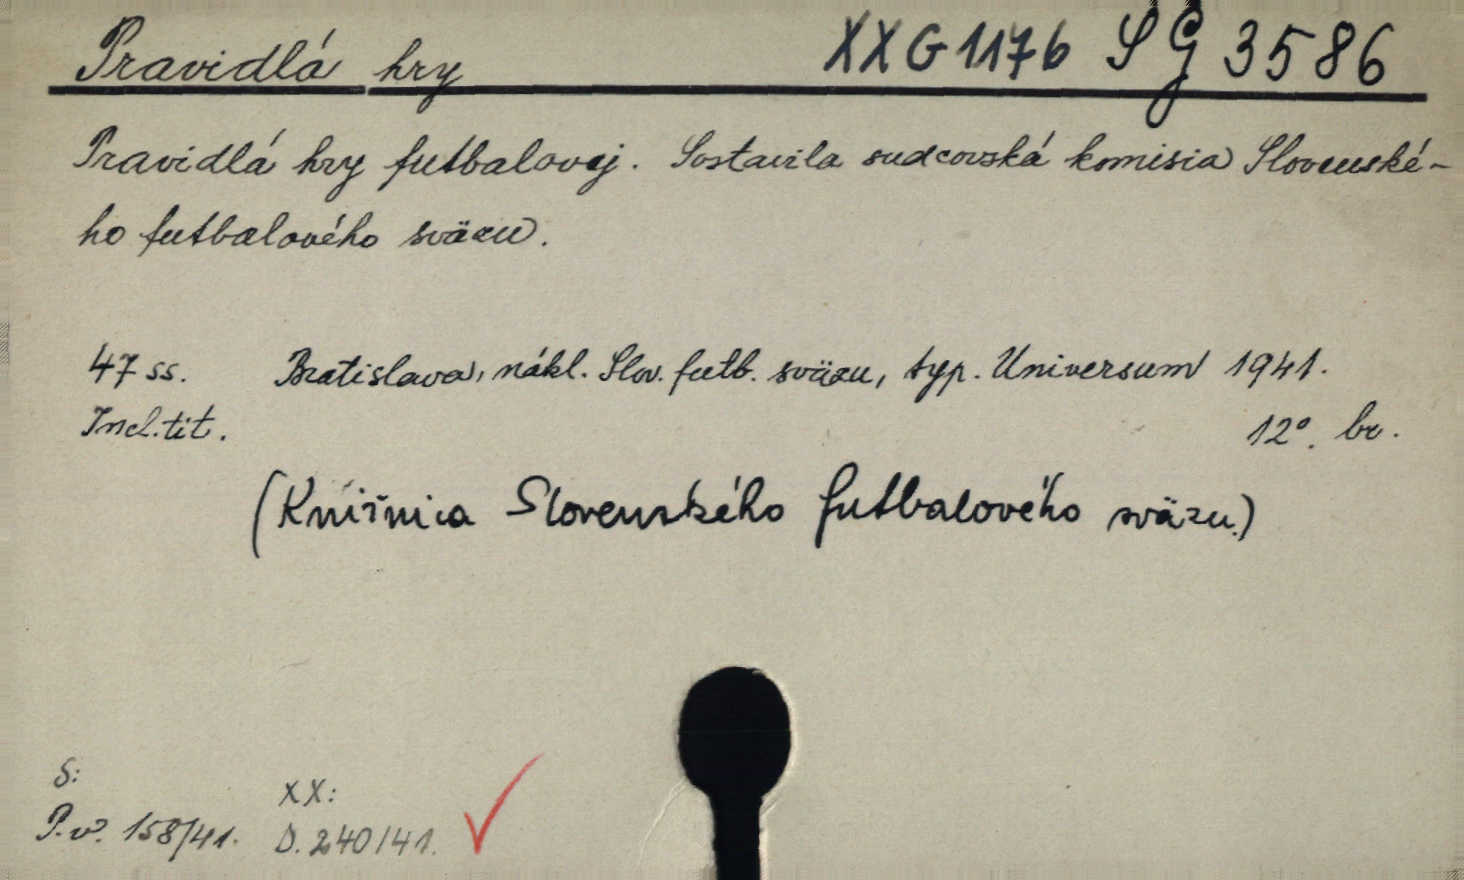 Pravidlá hry XX G 1176 S G 3586
Pravidlá hry futbalovej. Sostavila sudcovská komisia Slovenské-
ho futbalového sväzu.
47 ss. Bratislava, nákl. Slov. futb. sväzu, typ. Universum 1941.
Incl. tit. 12°. br.
(Knižnica Slovenského futbalového sväzu.)
S: XX:
P. v. 158/41. D. 240/41.